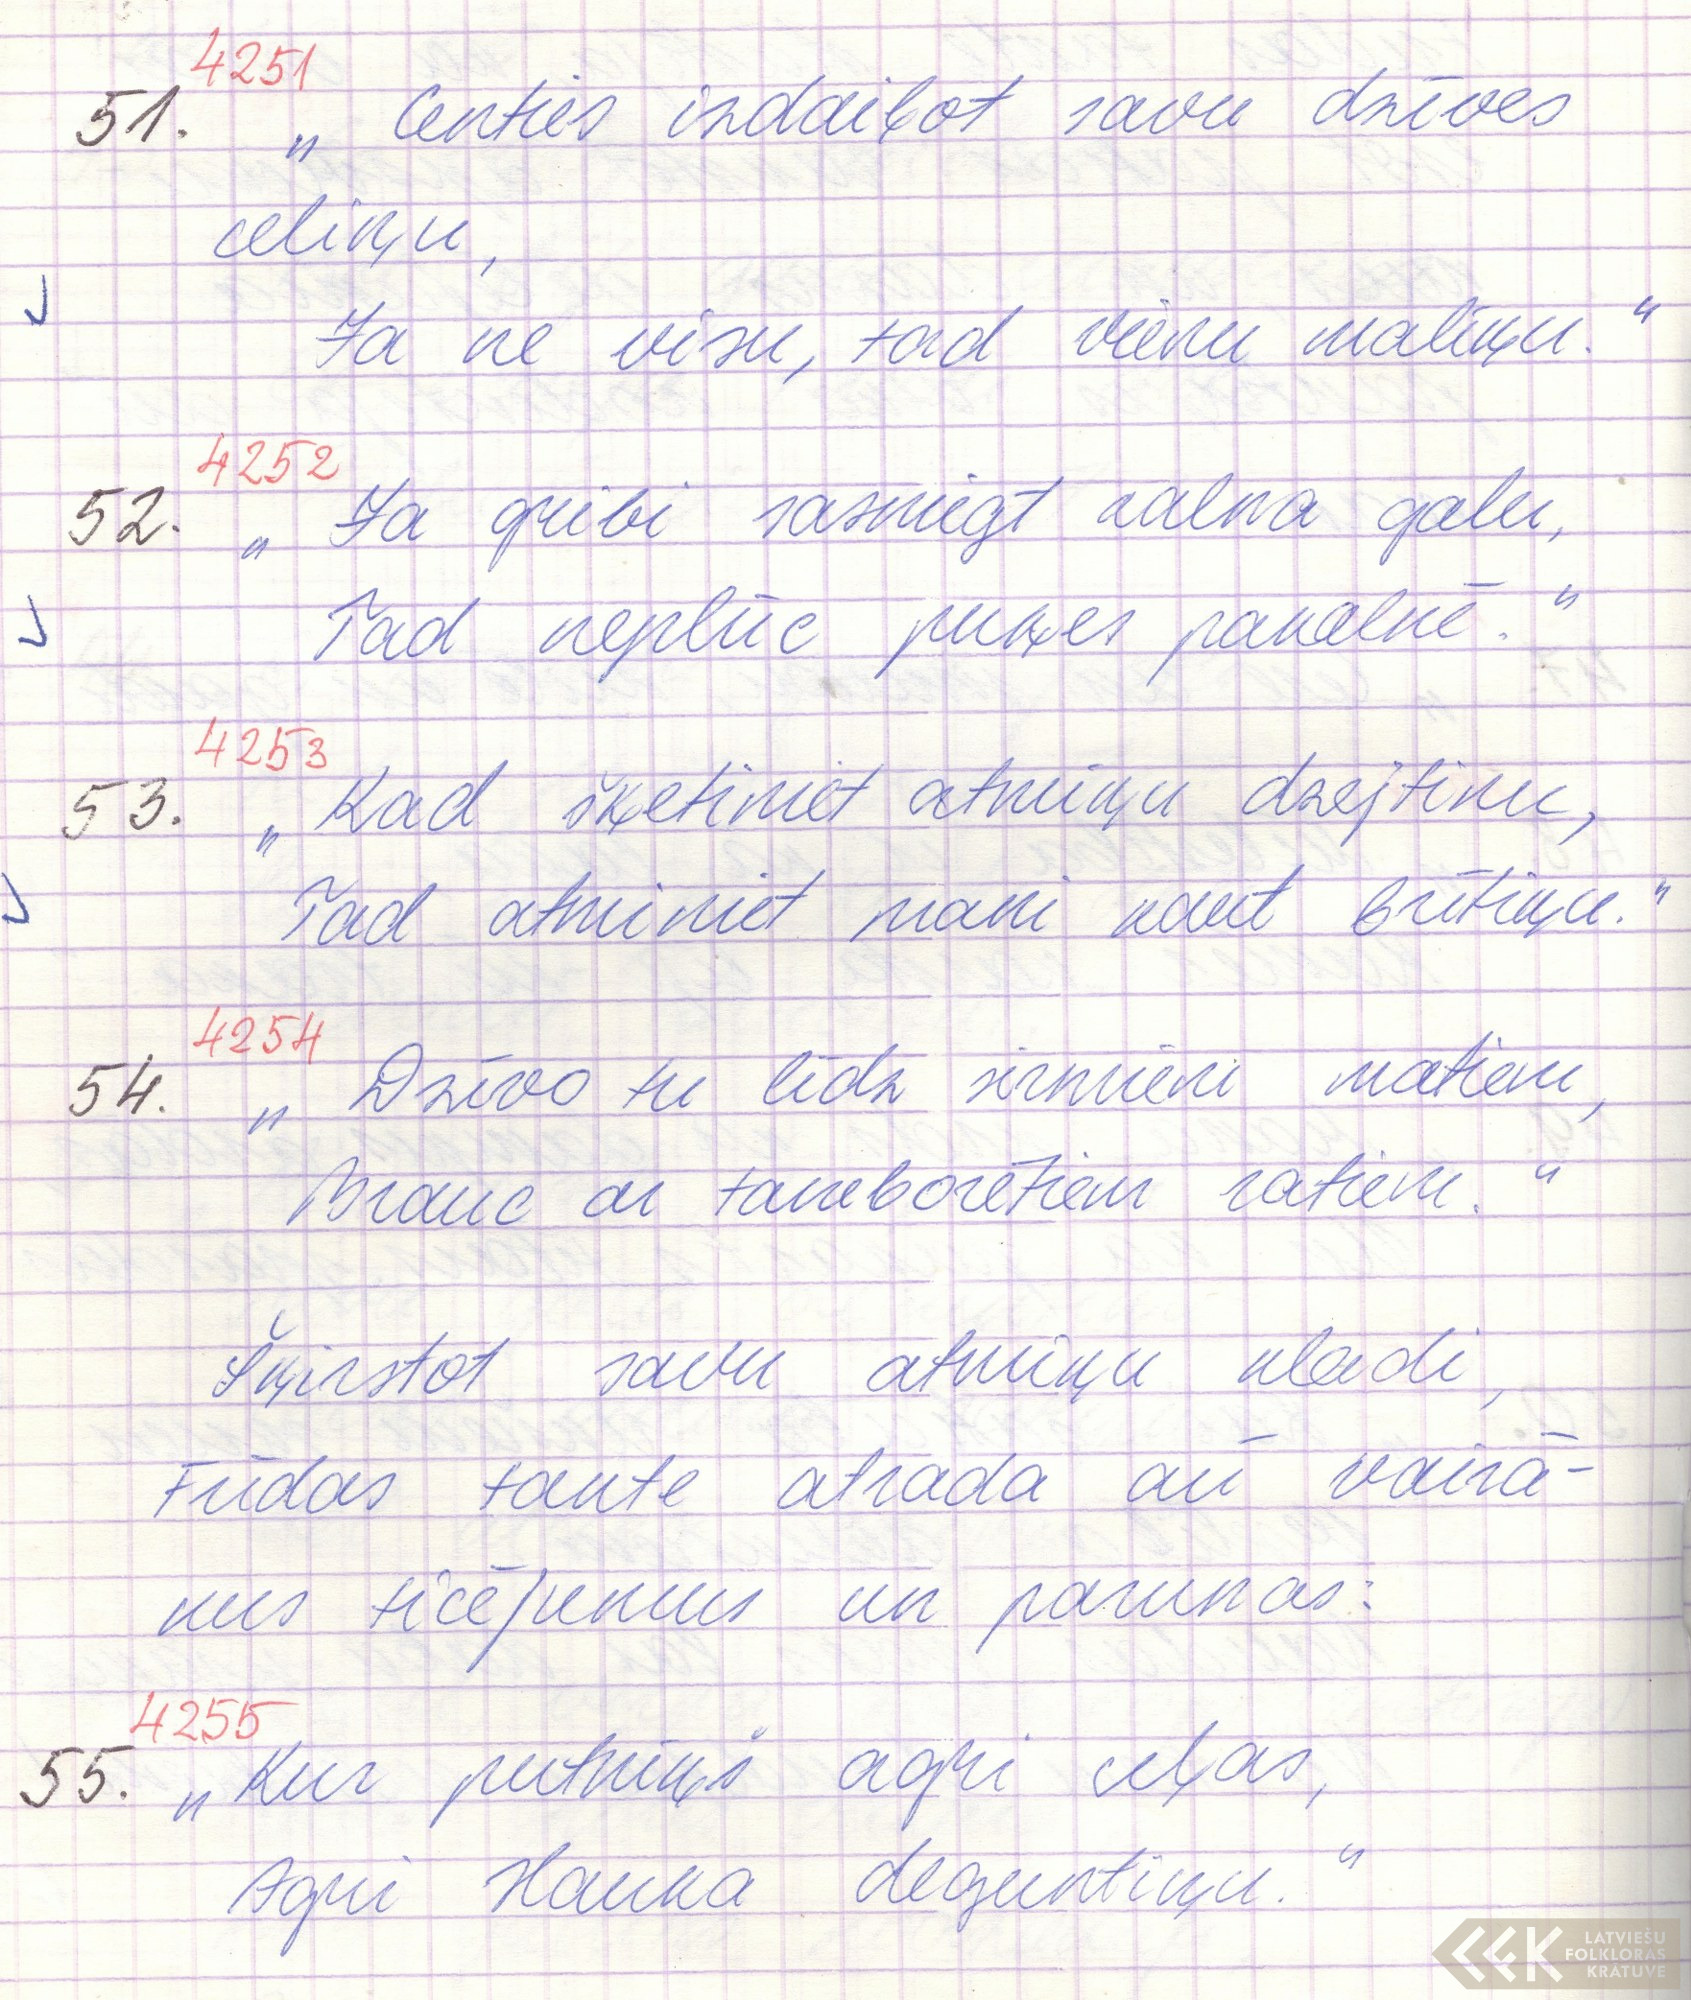 4251
51. „Centies izdaiļot savu dzīves
celiņu,
Ja ne visu, tad vienu maliņu.“
4252
52. „Ja gribi sasniegt kalna galu,
Tad neplūc puķes pakalnē.“
4253
53. „Kad šķetiniet atmiņu dzejtinu,
Tad atminiet mani kaut brītiņu.“
4254
54. „Dzīvo tu līdz sirmiem matiem,
Brauc ar tamborētiem ratiem.“
Šķirstot savu atmiņu kladi,
Fūdas tante atrada arī vairā-
kus ticējumus un parunas:
4255
55. „Kur putniņš agri ceļas,
Agri slauka deguntiņu.“
LATVIEŠU
FOLKLORAS
KRĀTUVE